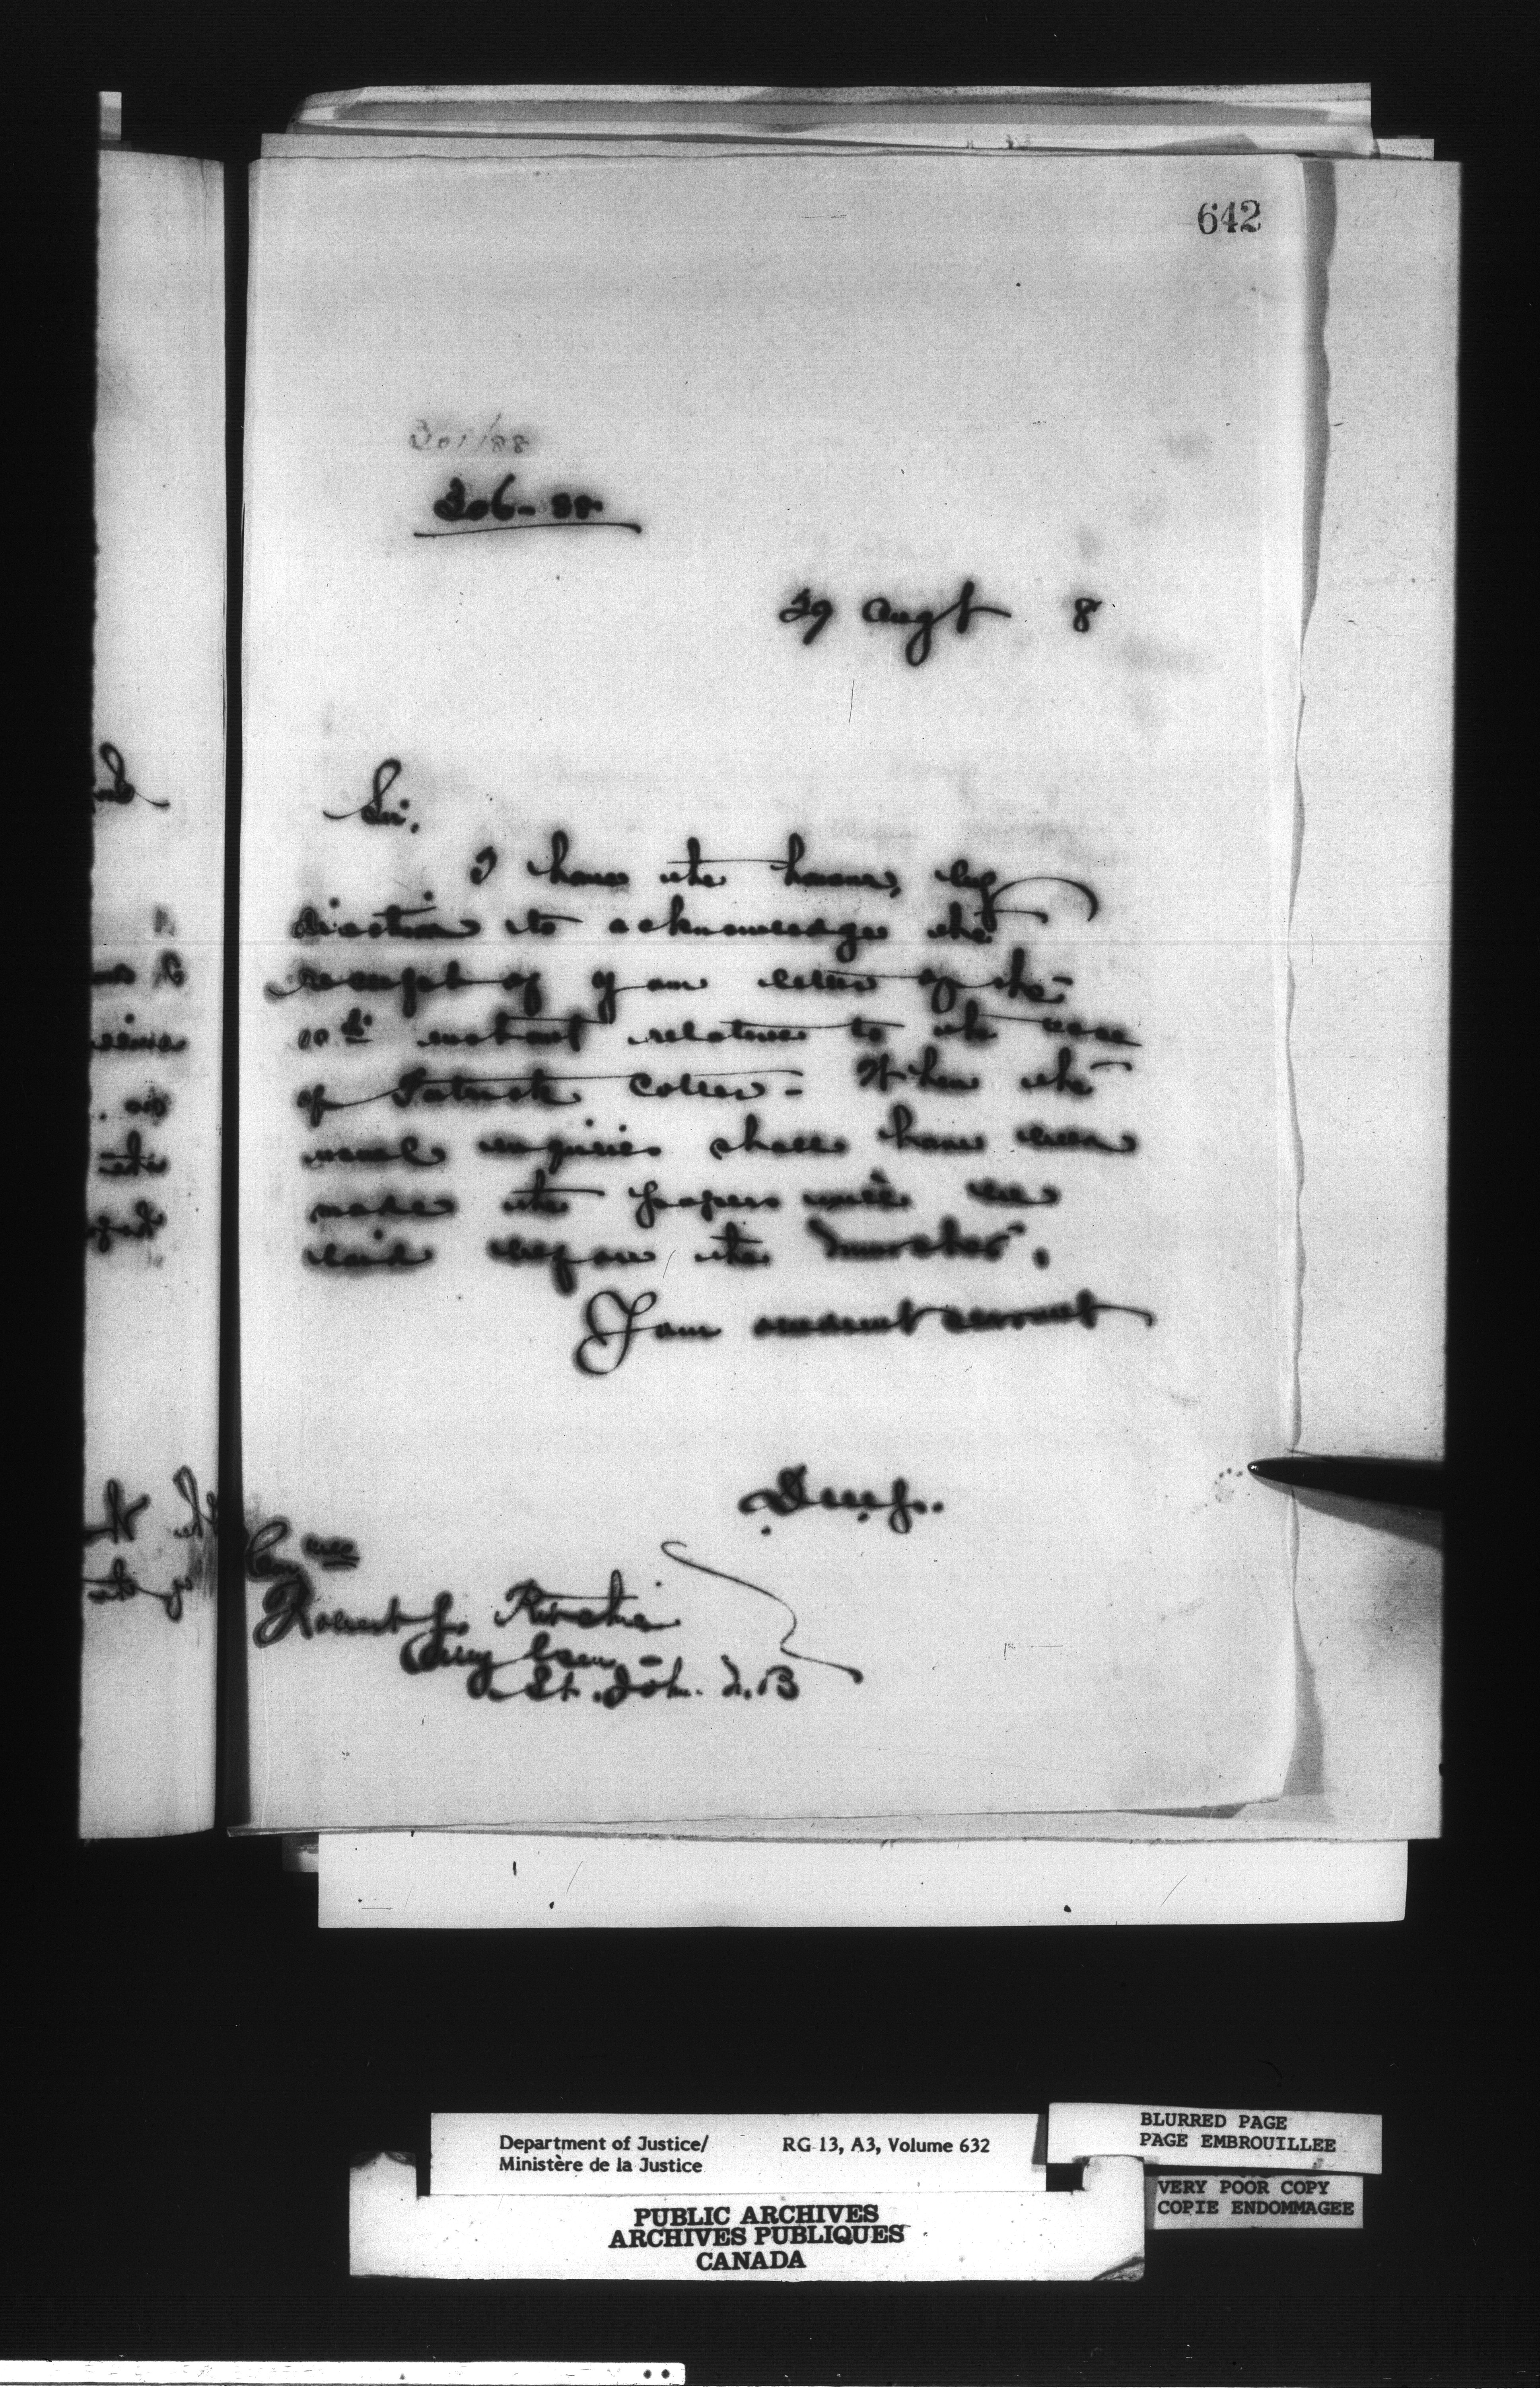 642
301/88
306-88
29 Augt 8
Sir,
I have the honour, by
direction to acknowledge the
receipt of your letter of the
instant relative to the case
of Patrick - When the
usual enquiries shall have been
made the papers will be
laid before the Minister.
I am servant
Robert J. Ritchie
St. John. N.B
Department of Justice/
Ministère de la Justice
RG 13, A3, Volume 632
BLURRED PAGE
PAGE EMBROUILLEE
VERY POOR COPY
COPIE ENDOMMAGEE
PUBLIC ARCHIVES
ARCHIVES PUBLIQUES
CANADA